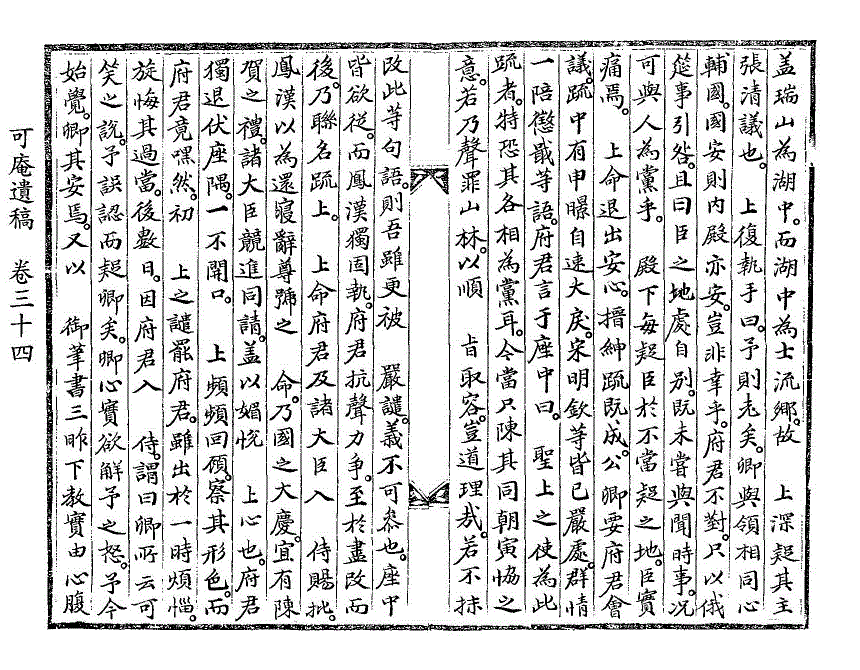 盖瑞山為湖中。而湖中為士流鄉。故 上深疑其主
張清議也。 上復執手曰。予則老矣。卿與領相同心
輔國。國安則內殿亦安。豈非幸乎。府君不對。只以俄
筵事引咎。且曰臣之地處自別。既未嘗與聞時事。况
可與人為黨乎。 殿下每疑臣於不當疑之地。臣實
痛焉。 上命退出安心。搢紳疏既成。公卿要府君會
議。疏中有申㬥自速大戾。宋明欽等皆已嚴處。群情
一陪懲戢等語。府君言于座中曰。 聖上之使為此
疏者。特恐其各相為黨耳。今當只陳其同朝寅恊之
意。若乃聲罪山林。以順 旨取容。豈道理哉。若不抹
改此等句語。則吾雖更被 嚴譴。義不可叅也。座中
皆欲從。而鳳漢獨固執。府君抗聲力爭。至於盡改而
後。乃聯名疏上。 上命府君及諸大臣入 侍賜批。
鳳漢以為還寢辭尊號之 命。乃國之大慶。宜有陳
賀之禮。諸大臣競進同請。盖以媚悅 上心也。府君
獨退伏座隅。一不開口。 上頻頻回顧。察其形色。而
府君竟嘿然。初 上之譴罷府君。雖出於一時煩惱。
旋悔其過當。後數日。因府君入 侍。謂曰卿所云可
笑之說。予誤認而疑卿矣。卿心實欲解予之怒。予今
始覺。卿其安焉。又以 御筆書三昨下教實由心腹
可庵遺稿 卷三十四